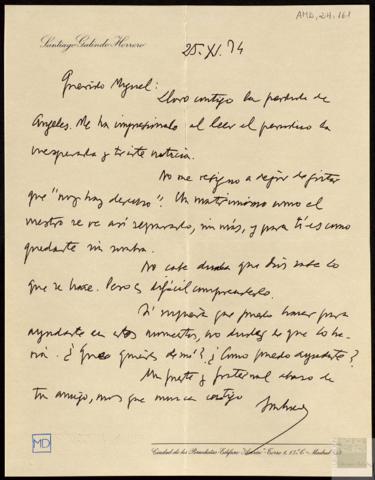 AMD, 24, 161
Santiago Galindo Herrero
25. XI. 74
Querido Miguel:
Lloro contigo la pérdida de
Angeles. Me ha impresionado al leer el periódico la
inesperada y triste noticia.
No me resigno a dejar de gritar
que "no hay derecho". Un matrimonio como el
vuestro se ve así separado, sin más, y para ti es como
quedarte sin sombra.
No cabe duda que Dios sabe lo
que se hace. Pero es difícil comprenderlo.
Si supiera que puedo hacer para
ayudarte en estos momentos, no dudes es que lo ha-
ría. ¿Qué quieres de mí? ¿Cómo puedo ayudarte?
Un fuerte y fraternal abrazo de
tu amigo, más que nunca contigo
MD
Ciudad de los Periodistas Edificio "Azorín" Torre 1, 13.º C - Madrid